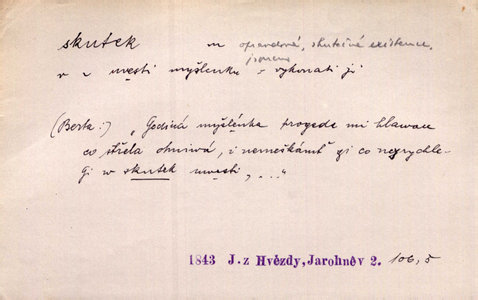 skutek m opravdová, skutečná existence,
v s uvesti myšlenku = vykonati ji
(Berta:) „Godiná myšlénka progede mi hlawau
co střela ohniwá, i nemeškámť gi co neyrychle-
gi w skutek uwesti, ..."
1843 J. z Hvězdy, Jarohněv 2. 106, 5